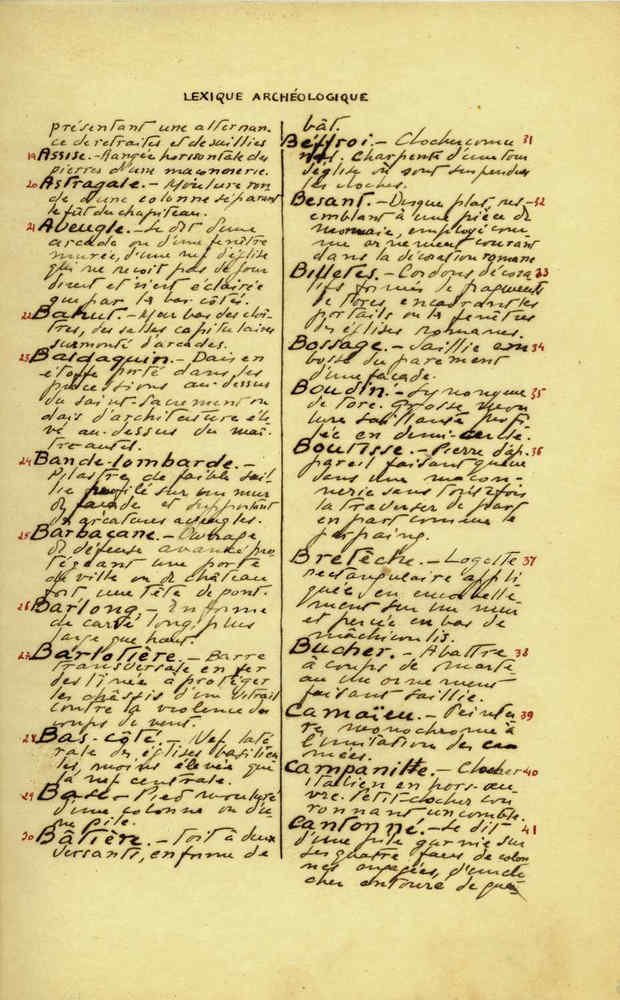 LEXIQUE ARCHÉOLOGIQUE
présentant une alternan-
ce de retraits et de saillies
19 Assise.- Rangée horisontale des
pierres d'une maçonnerie.
20 Astragale.- Moulure ron
de d'une colonne séparant
le fût du chapiteau.
21 Aveugle.- Se dit d'une
arcade ou d'une fenêtre
murée, d'une nef d'église
qui ne reçoit pas de jour
direct et n'est éclairée
que par les bas côtés.
22 Bahut.- Mur bas des cloî-
tres, des salles capitulaires
surmonté d'arcades.
23 Baldaquin.- Dais en
étoffe porté dans les
processions au-dessus
du Saint-Sacrement ou
dais d'architecture éle-
vé au-dessus du maî-
tre-autel.
24 Bande-lombarde.-
Pilastre de faible sail-
lie profilé sur un mur
de façade et supportant
des arcatures aveugles.
25 Barbacane.- Ouvrage
de défense avancé pro
tégeant une porte
de ville ou de château
fort, une tête de pont.
26 Barlong.- En forme
de carré long, plus
large que haut.
27 Barlotière.- Barre
transversale en fer
destinée à protéger
les châssis d'un vitrail
contre la violence des
coups de vent.
28 Bas-côté.- Nef laté
rale des églises basilica
les, moins élevée que
la nef centrale.
29 Base.- Pied mouluré
d'une colonne ou d'u
ne pile.
30 Bâtière.- Toit à deux
versants, en forme de
bât.
Beffroi.- Clocher 31
Charpente d'une tour
d'église où sont suspendues
les cloches.
Besant.- Disque plat, res- 32
emblant à une pièce de
monnaie, employé com
me ornement courant
dans la décoration romane
Billetes.- Cordons décora 33
tifs formés de fragments
de tores, encadrant les
portails ou les fenêtres
des églises romanes.
Bossage.- Saillie en 34
bosse du parement
d'une façade.
Boudin.- Synonyme 35
de tore. Grosse mou
lure saillante profi
lée en demi-cercle.
Boutisse.- Pierre d'ap. 36
pareil faisant queue
dans une maçon-
nerie sans toutefois
la traverser de part
en part comme le
parpaing.
Bretêche.- Logette 37
rectangulaire appli
quée en encorbelle
ment sur un mur
et percée en bas de
machicoulis.
Bucher.- Abattre 38
à coups de marte
au un ornement
faisant saillie.
Camaïeu.- Peintu 39
re monochrome à
l'imitation des cam
mées.
Campanille.- Clocher 40
italien en hors-œu
vre. Petit-clocher cou
ronnant un comble.
Cantonné.- Se dit 41
d'une pile garnie sur
ses quatre faces de colon
nes engagées, d'un clo
cher entouré de